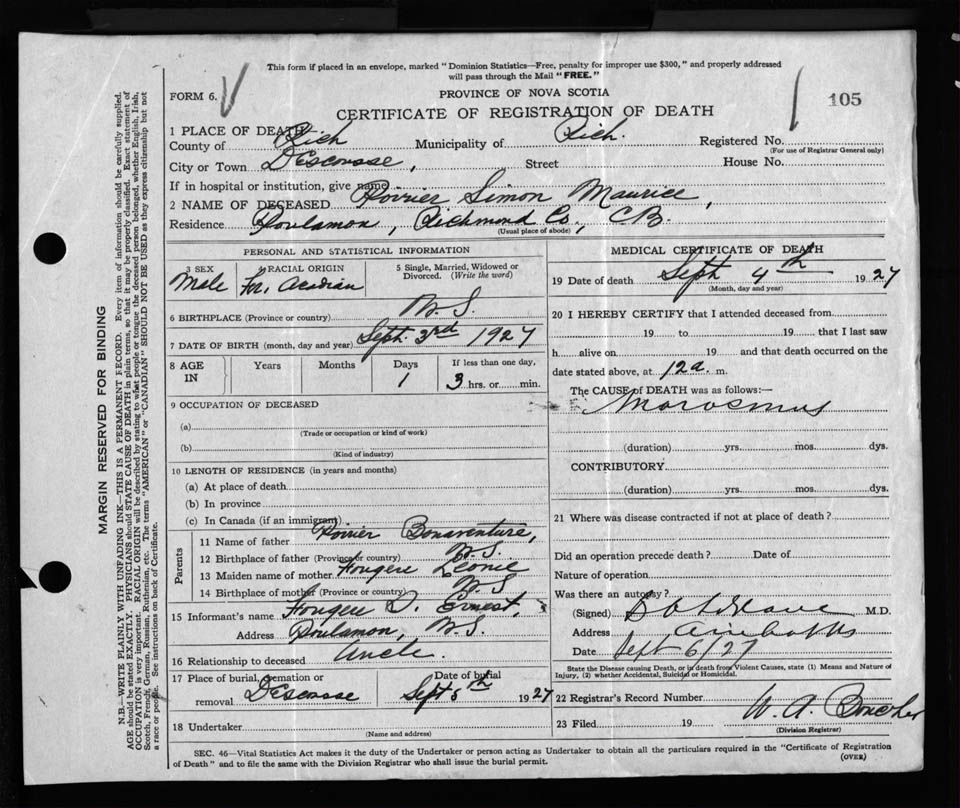 This form if placed in an envelope, marked "Dominion Statistics—Free, penalty for improper use $300," and properly addressed
will pass through the Mail "FREE."
FORM 6.
PROVINCE OF NOVA SCOTIA
105
CERTIFICATE OF REGISTRATION OF DEATH
1 PLACE OF DEATH
County of Rich Municipality of Rich. Registered No.
(For use of Registrar General only)
City or Town Descousse, Street House No.
If in hospital or institution, give name
2 NAME OF DECEASED Poirier Simon Maurice,
Residence Poulamon, Richmond Co, CB.
(Usual place of abode)
PERSONAL AND STATISTICAL INFORMATION
3 SEX
Male
RACIAL ORIGIN
Fr. Acadian
5 Single, Married, Widowed or
Divorced. (Write the word)
6 BIRTHPLACE (Province or country) N.S.
7 DATE OF BIRTH (month, day and year) Sept. 3rd 1927
8 AGE
IN
Years
Months
Days
1
If less than one day,
3 hrs. or min.
9 OCCUPATION OF DECEASED
(a)
(Trade or occupation or kind of work)
(b)
(Kind of industry)
10 LENGTH OF RESIDENCE (in years and months)
(a) At place of death
(b) In province
(c) In Canada (if an immigrant)
Parents
11 Name of father Poirier Bonaventure,
12 Birthplace of father (Province or country) N.S.
13 Maiden name of mother Fougere Leonie
14 Birthplace of mother (Province or country) N.S
15 Informant's name Fougere S. Ernest,
Address Poulamon, N.S.
16 Relationship to deceased Uncle.
17 Place of burial, cremation or
removal Descousse
Date of burial
Sept 5th 1927
18 Undertaker
(Name and address)
MEDICAL CERTIFICATE OF DEATH
19 Date of death Sept 4th 1927
(Month, day and year)
20 I HEREBY CERTIFY that I attended deceased from
19 to 19 that I last saw
h alive on 19 and that death occurred on the
date stated above, at 12a. m.
The CAUSE of DEATH was as follows:—
Marasmus
(duration) yrs. mos. dys.
CONTRIBUTORY
(duration) yrs. mos. dys.
21 Where was disease contracted if not at place of death?
Did an operation precede death? Date of
Nature of operation
Was there an autopsy?
(Signed) M.D.
Address Arichat NS
Date Sept 6/27
State the Disease causing Death, or in death from Violent Causes, state (1) Means and Nature of
Injury, (2) whether Accidental, Suicidal or Homicidal.
22 Registrar's Record Number
23 Filed 19
(Division Registrar)
SEC. 46—Vital Statistics Act makes it the duty of the Undertaker or person acting as Undertaker to obtain all the particulars required in the "Certificate of Registration
of Death" and to file the same with the Division Registrar who shall issue the burial permit.
(OVER)
MARGIN RESERVED FOR BINDING
N.B.—WRITE PLAINLY WITH UNFADING INK—THIS IS A PERMANENT RECORD. Every item of information should be carefully supplied.
AGE should be stated EXACTLY. PHYSICIANS should STATE CAUSE OF DEATH in plain terms, so that it may be properly classified. Exact statement of
OCCUPATION is very important. RACIAL ORIGIN will be described by stating to what people or tongue the deceased person belonged, whether English, Irish,
Scotch, French, German, Russian, Ruthenian, etc. The terms "AMERICAN" or "CANADIAN" SHOULD NOT BE USED as they express citizenship but not
a race or people. See instructions on back of Certificate.